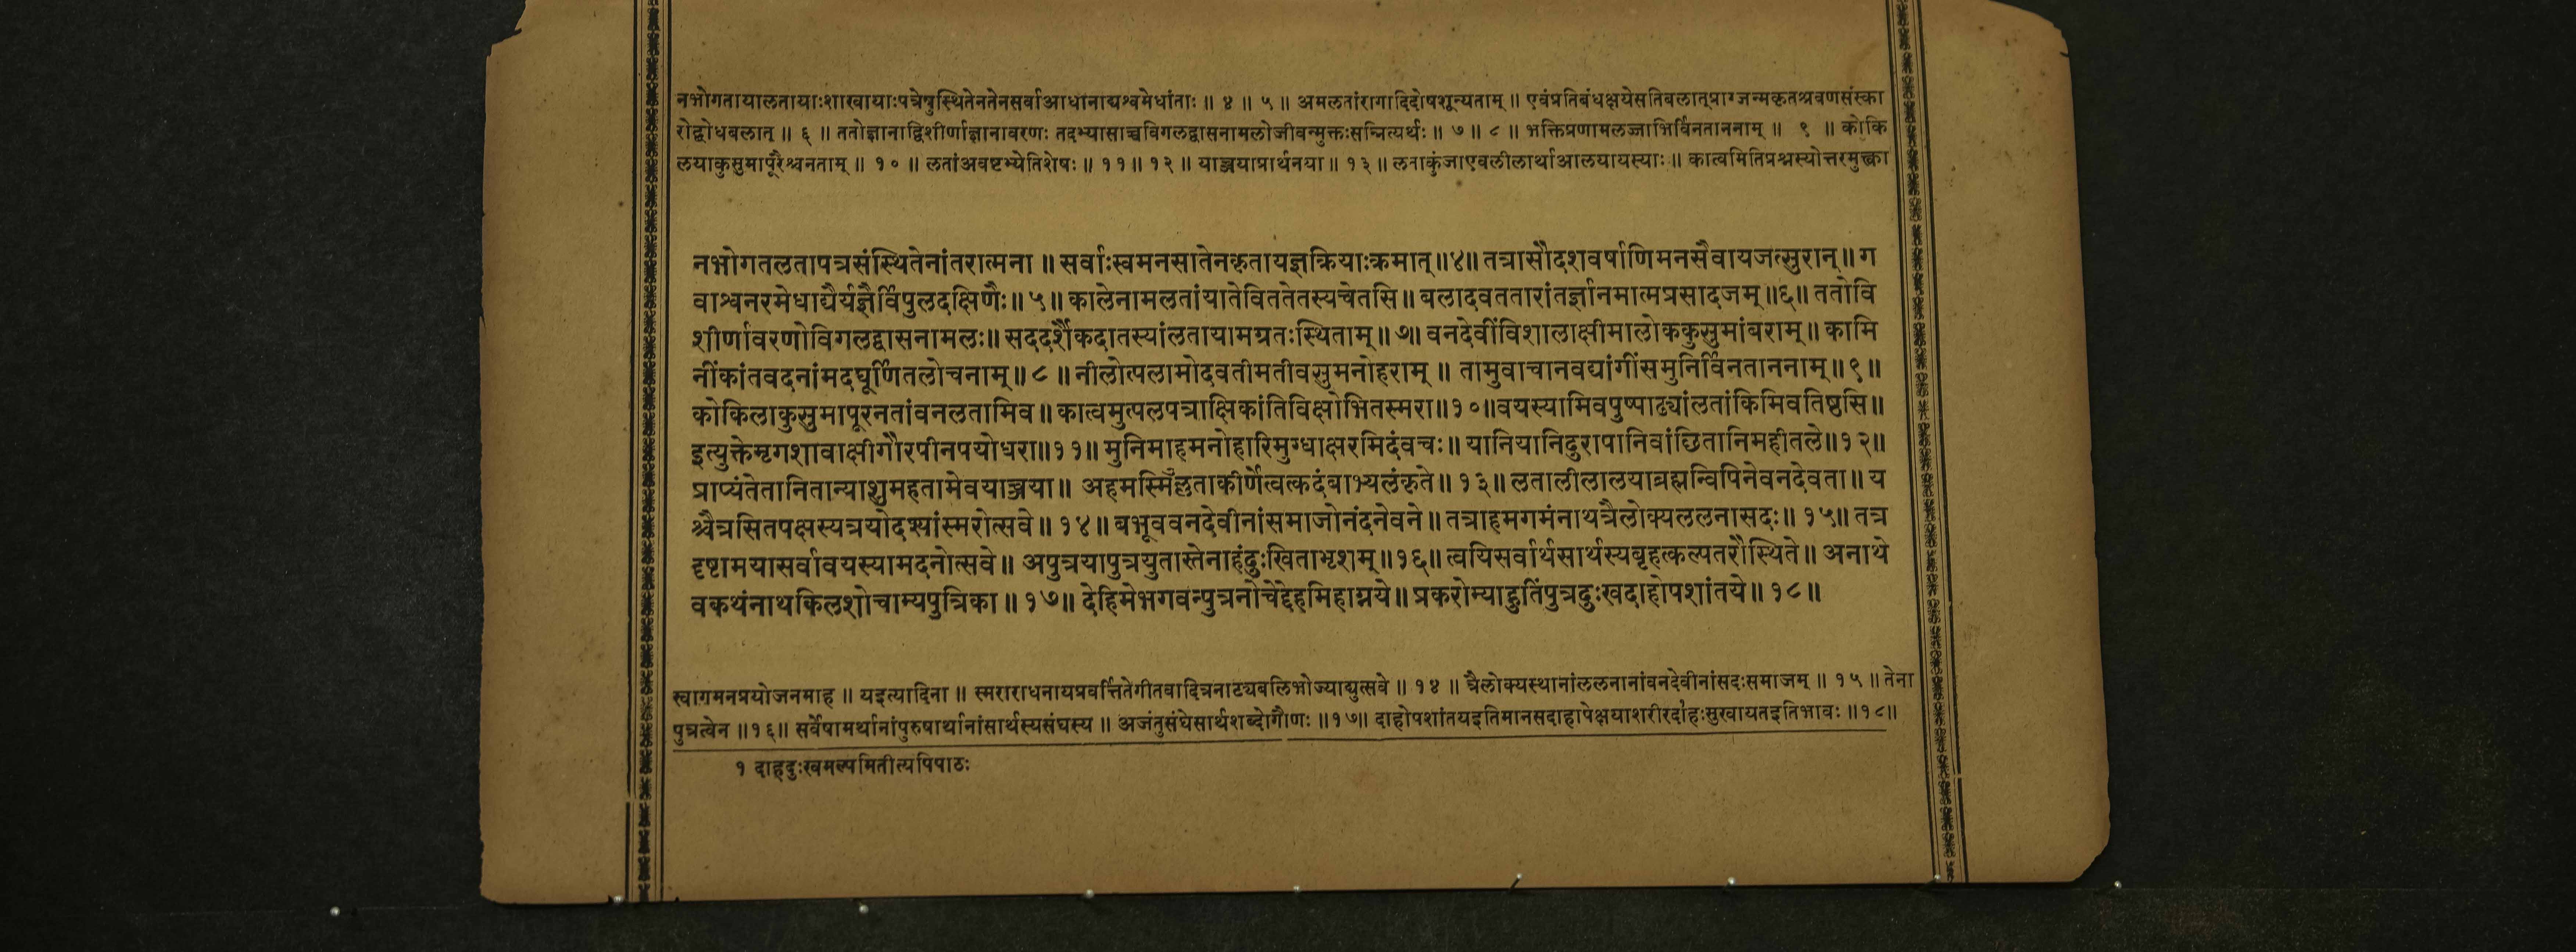 नभोगतायालतायाःशाखायाःपत्रेषुस्थितेनतेनसर्वाआधानाद्यश्वमेधांताः ॥ ४ ॥ ५ ॥ अमलतांरागादिदोषशून्यताम् ॥ एवंप्रतिबंधक्षयेसतिबलात्प्राग्जन्मकृतश्रवणसंस्का
रोद्बोधबलात् ॥ ६ ॥ ततोज्ञानाद्विशीर्णाज्ञानावरणः तदभ्यासाच्चविगलद्वासनामलोजीवन्मुक्तःसन्नित्यर्थः ॥ ७ ॥ ८ ॥ भक्तिप्रणामलज्जाभिर्विनताननाम् ॥ ९ ॥ कोकि
लयाकुसुमापूरैश्चनताम् ॥ १० ॥ लतांअवष्टभ्येतिशेषः ॥ ११ ॥ १२ ॥ याच्ञयाप्रार्थनया ॥ १३ ॥ लताकुंजाएवलीलार्थाआलयायस्याः ॥ कात्वमितिप्रश्नस्योत्तरमुक्त्वा
नभोगतलतापत्रसंस्थितेनांतरात्मना ॥ सर्वाःस्वमनसातेनकृतायज्ञक्रियाःक्रमात् ॥४॥ तत्रासौदशवर्षाणिमनसैवायजत्सुरान् ॥ ग
वाश्वनरमेधाद्यैर्यज्ञैर्विपुलदक्षिणैः ॥ ५ ॥ कालेनामलतांयातेविततेतस्यचेतसि ॥ बलादवततारांतर्ज्ञानमात्मप्रसादजम् ॥६॥ ततोवि
शीर्णावरणोविगलद्वासनामलः ॥ सददर्शैकदातस्यांलतायामग्रतःस्थिताम् ॥ ७ ॥ वनदेवींविशालाक्षीमालोककुसुमांबराम् ॥ कामि
नींकांतवदनांमदघूर्णितलोचनाम् ॥ ८ ॥ नीलोत्पलामोदवतीमतीवसुमनोहराम् ॥ तामुवाचानवद्यांगींसमुनिर्विनताननाम् ॥ ९ ॥
कोकिलाकुसुमापूरनतांवनलतामिव ॥ कात्वमुत्पलपत्राक्षिकांतिविक्षोभितस्मरा ॥१०॥ वयस्यामिवपुष्पाढ्यांलतांकिमिवतिष्ठसि ॥
इत्युक्तेमृगशावाक्षीगौरपीनपयोधरा ॥११॥ मुनिमाहमनोहारिमुग्धाक्षरमिदंवचः ॥ यानियानिदुरापानिवांछितानिमहीतले ॥१२॥
प्राप्यंतेतानितान्याशुमहतामेवयाच्ञया ॥ अहमस्मिँल्लताकीर्णेत्वत्कदंबाभ्यलंकृते ॥ १३ ॥ लतालीलालयाब्रह्मन्विपिनेवनदेवता ॥ य
श्चैत्रसितपक्षस्यत्रयोदश्यांस्मरोत्सवे ॥ १४ ॥ बभूववनदेवीनांसमाजोनंदनेवने ॥ तत्राहमगमंनाथत्रैलोक्यललनासदः ॥ १५ ॥ तत्र
दृष्टामयासर्वावयस्यामदनोत्सवे ॥ अपुत्रयापुत्रयुतास्तेनाहंदुःखिताभृशम् ॥१६॥ त्वयिसर्वार्थसार्थस्यबृहत्कल्पतरौस्थिते ॥ अनाथे
वकथंनाथकिलशोचाम्यपुत्रिका ॥ १७ ॥ देहिमेभगवन्पुत्रनोचेद्देहमिहाग्नये ॥ प्रकरोम्याहुतिंपुत्रदुःखदाहोपशांतये ॥ १८ ॥
स्वागमनप्रयोजनमाह ॥ यइत्यादिना ॥ स्मराराधनायप्रवर्त्तितेगीतवादित्रनाट्यबलिभोज्याद्युत्सवे ॥ १४ ॥ त्रैलोक्यस्थानांललनानांवनदेवीनांसदःसमाजम् ॥ १५ ॥ तेना
पुत्रत्वेन ॥१६॥ सर्वेषामर्थानांपुरुषार्थानांसार्थस्यसंघस्य ॥ अजंतुसंघेसार्थशब्दोगौणः ॥१७॥ दाहोपशांतयइतिमानसदाहापेक्षयाशरीरदाहःसुखायतइतिभावः ॥१८॥
१ दाहदुःखमल्पमितीत्यपिपाठः